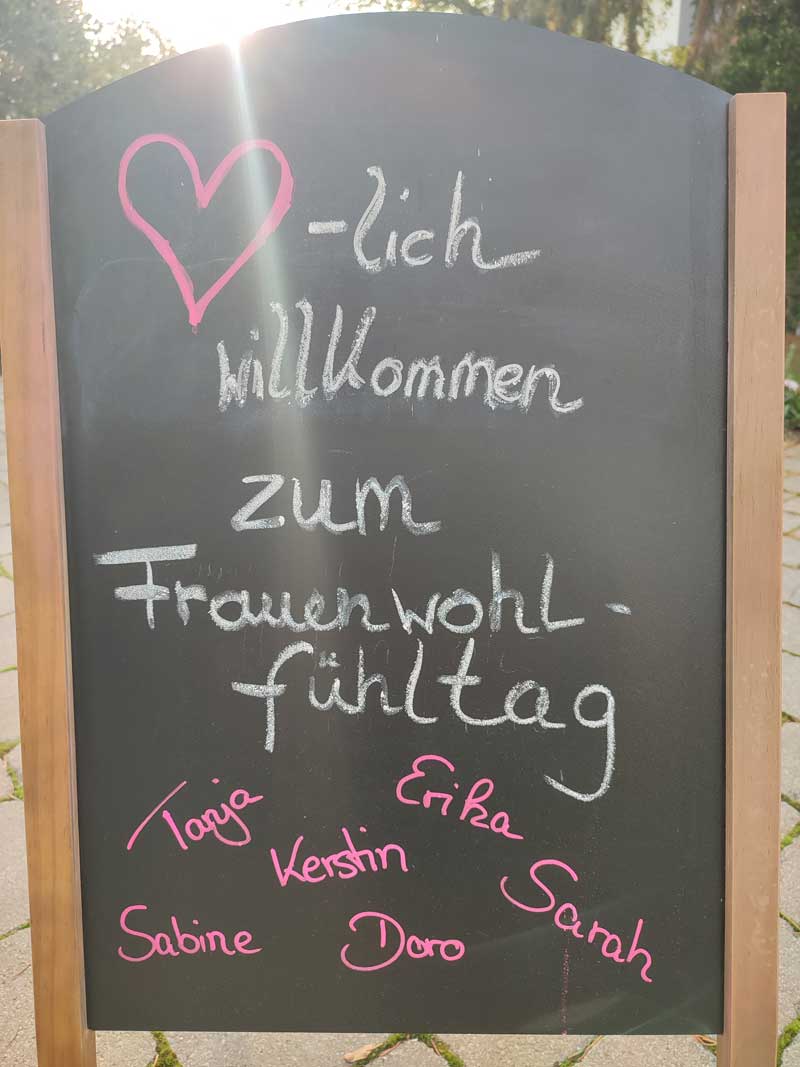 ♡-lich
willkommen
zum
Frauenwohl-
fühltag
Tanja
Erika
Kerstin
Sarah
Sabine
Doro